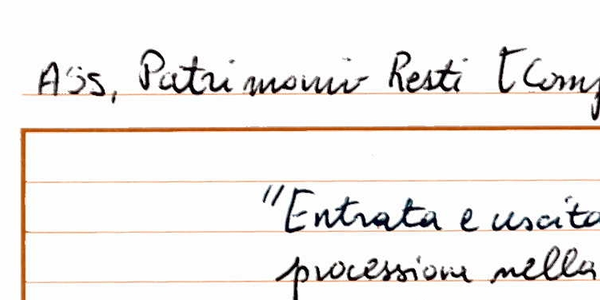 Ass, Patrimonio Resti [Comp
"Entrata e uscita
processione nella